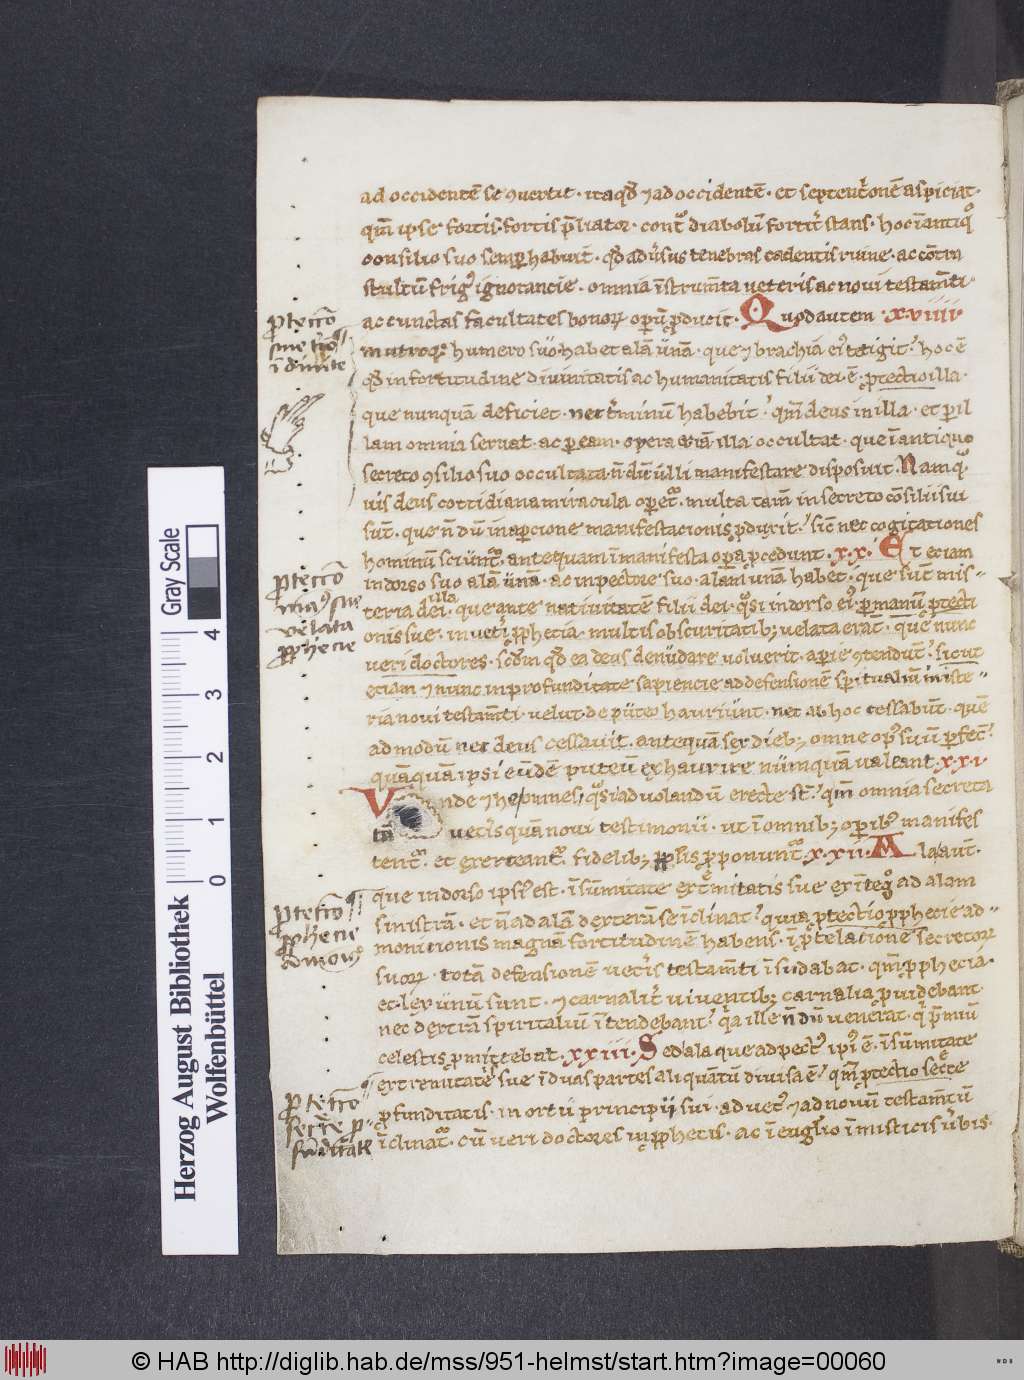 ad occidentē se ꝯuertit · itaqd̄ ⁊ ad occidentē · et septent'onē aspiciat ·
qm̄ ipse fortis · fortis p̄liator · cont diabolū fortit' stans · hoc ī antiq
consilio suo semꝑ habuit · qd̄ aduˀsus tenebras cadentis ruine · ac cōtra
stultū frig' ignorancie · omnia īstrum̄ta ueteris ac noui testam̄ti ·
ac cunctas facultates bonoꝝ opeꝝ ꝓducit · Quod autem · xviiii ·
in utroq; humero suo habet alā unā · que ⁊ brachia ei' tetigit ' hoc ē
qd̄ in fortitudine diuinitatis ac humanitatis filii dei · ē · ꝓtectio illa ·
que nunquā deficiet · nec t'minū habebit ' qm̄ deus in illa · et ꝑ il
lam omnia seruat · ac ꝑ eam · opera illa occultat · que ī antiquo
secreto ꝯsilio suo occultata · n̄ dū ulli manifestare disposuit · Nam q̄
uis deus cottidiana miracula opet · multa tam̄ in secreto cōsilii sui
sūt · que n̄ dū in aꝑcione manifestacionis ꝓdurit ' sic nec cogitationes
hominū sciunt · antequam ī manifesta opa ꝓcedunt · xx · Et etiam
in dorso suo alā unā · ac in pectore suo · alam unā habet · que sūt mis-
teria dei illa · que ante natiuitatē filii dei · qsi in dorso ei' ꝑ manū ꝓtecti
onis sue · in uet'i ꝓphecia multis obscuritatib; uelata erāt · que nunc
ueri doctores · scdm qd̄ ea deus denudare uoluerit · aperie ⁊tendut ' sicut
etiam ⁊ nunc in profunditate sapiencie ad defensionē spiritualiū ministe-
ria noui testam̄ti · uelut de puteo hauriunt · nec ab hoc cessabūt · quē
ad modū nec deus cessauit · antequā sex dieb; omne op' suū ꝑfec'
quāquā ipsi eūdē puteū exhaurire nūmquā ualeant · xxi ·
V nde ⁊ he pinnes · qsi ad uolandū erecte st' ' qm̄ omnia secreta
tā uetis quā noui testimonii · ut ī omnib; opib' manifes
tent · et exerceant · fidelib; ꝓponunt · xxii · Ala aut ·
que in dorso ipsi' est · ī sūmitate extmitatis sue ex īteg ad alam
sinistrā · et n̄ ad alā dexterā se īclinat ' quia ꝓtectio ꝓphecie ad-
monitionis magnā fortitudinē habens · ī p̄telatione secretoꝝ
suoꝝ · totā defensionē uet'is testam̄ti īsudabat · qm̄ ꝓphecia ·
et lex unū sunt · ⁊ carnalit' uiuentib; carnalia ꝓuidebant
nec dextrā spiritaliū ītendebant ' qa ille n̄ dū uenerat · q p̄miū
celestis ꝓmittebat · xxiii · Sed ala que ad pect' ipi' ē · ī sūmitate
extremitatis sue ī duas partes aliquātū diuisa ē ' qm̄ ꝓtectio secte
ꝓfunditatis · in ortu principii sui · ad uet' ⁊ ad nouū testam̄tū
īclinat · cū ueri doctores ī ꝓphetis · ac ī euglio ī misticis ubis ·
ꝓteccō
sue
ī diuite
ꝓteccō
man' sue
velata
ꝓphecie
ꝓteccō
ꝓphecie
admonic'
ꝓteccō
secrete ꝓ-
fūditatis
Gray Scale
4
3
2
1
0
Herzog August Bibliothek
Wolfenbüttel
© HAB http://diglib.hab.de/mss/951-helmst/start.htm?image=00060